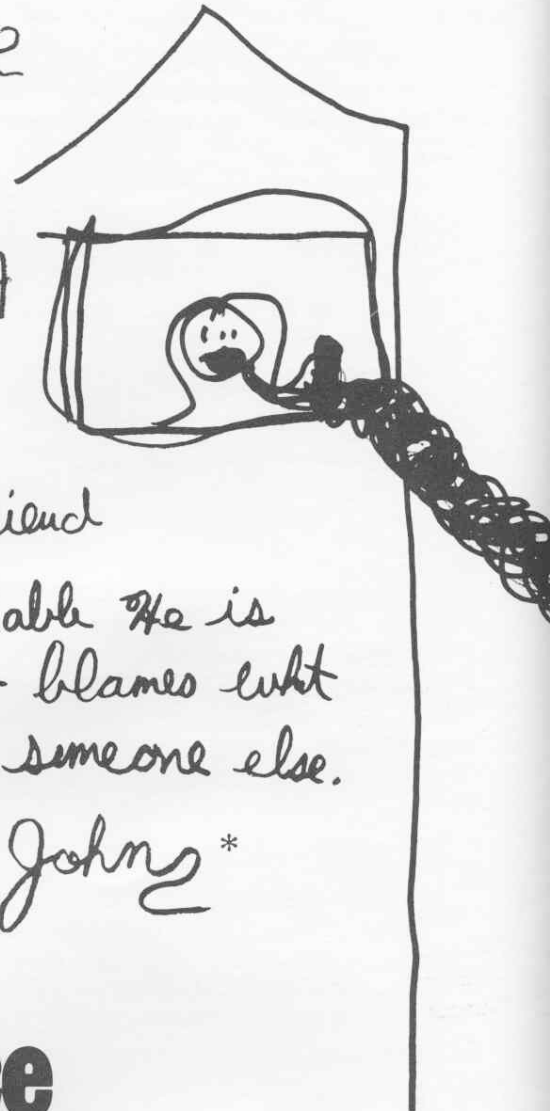 iend
able He is
blames wht
simeone else.
John *
e